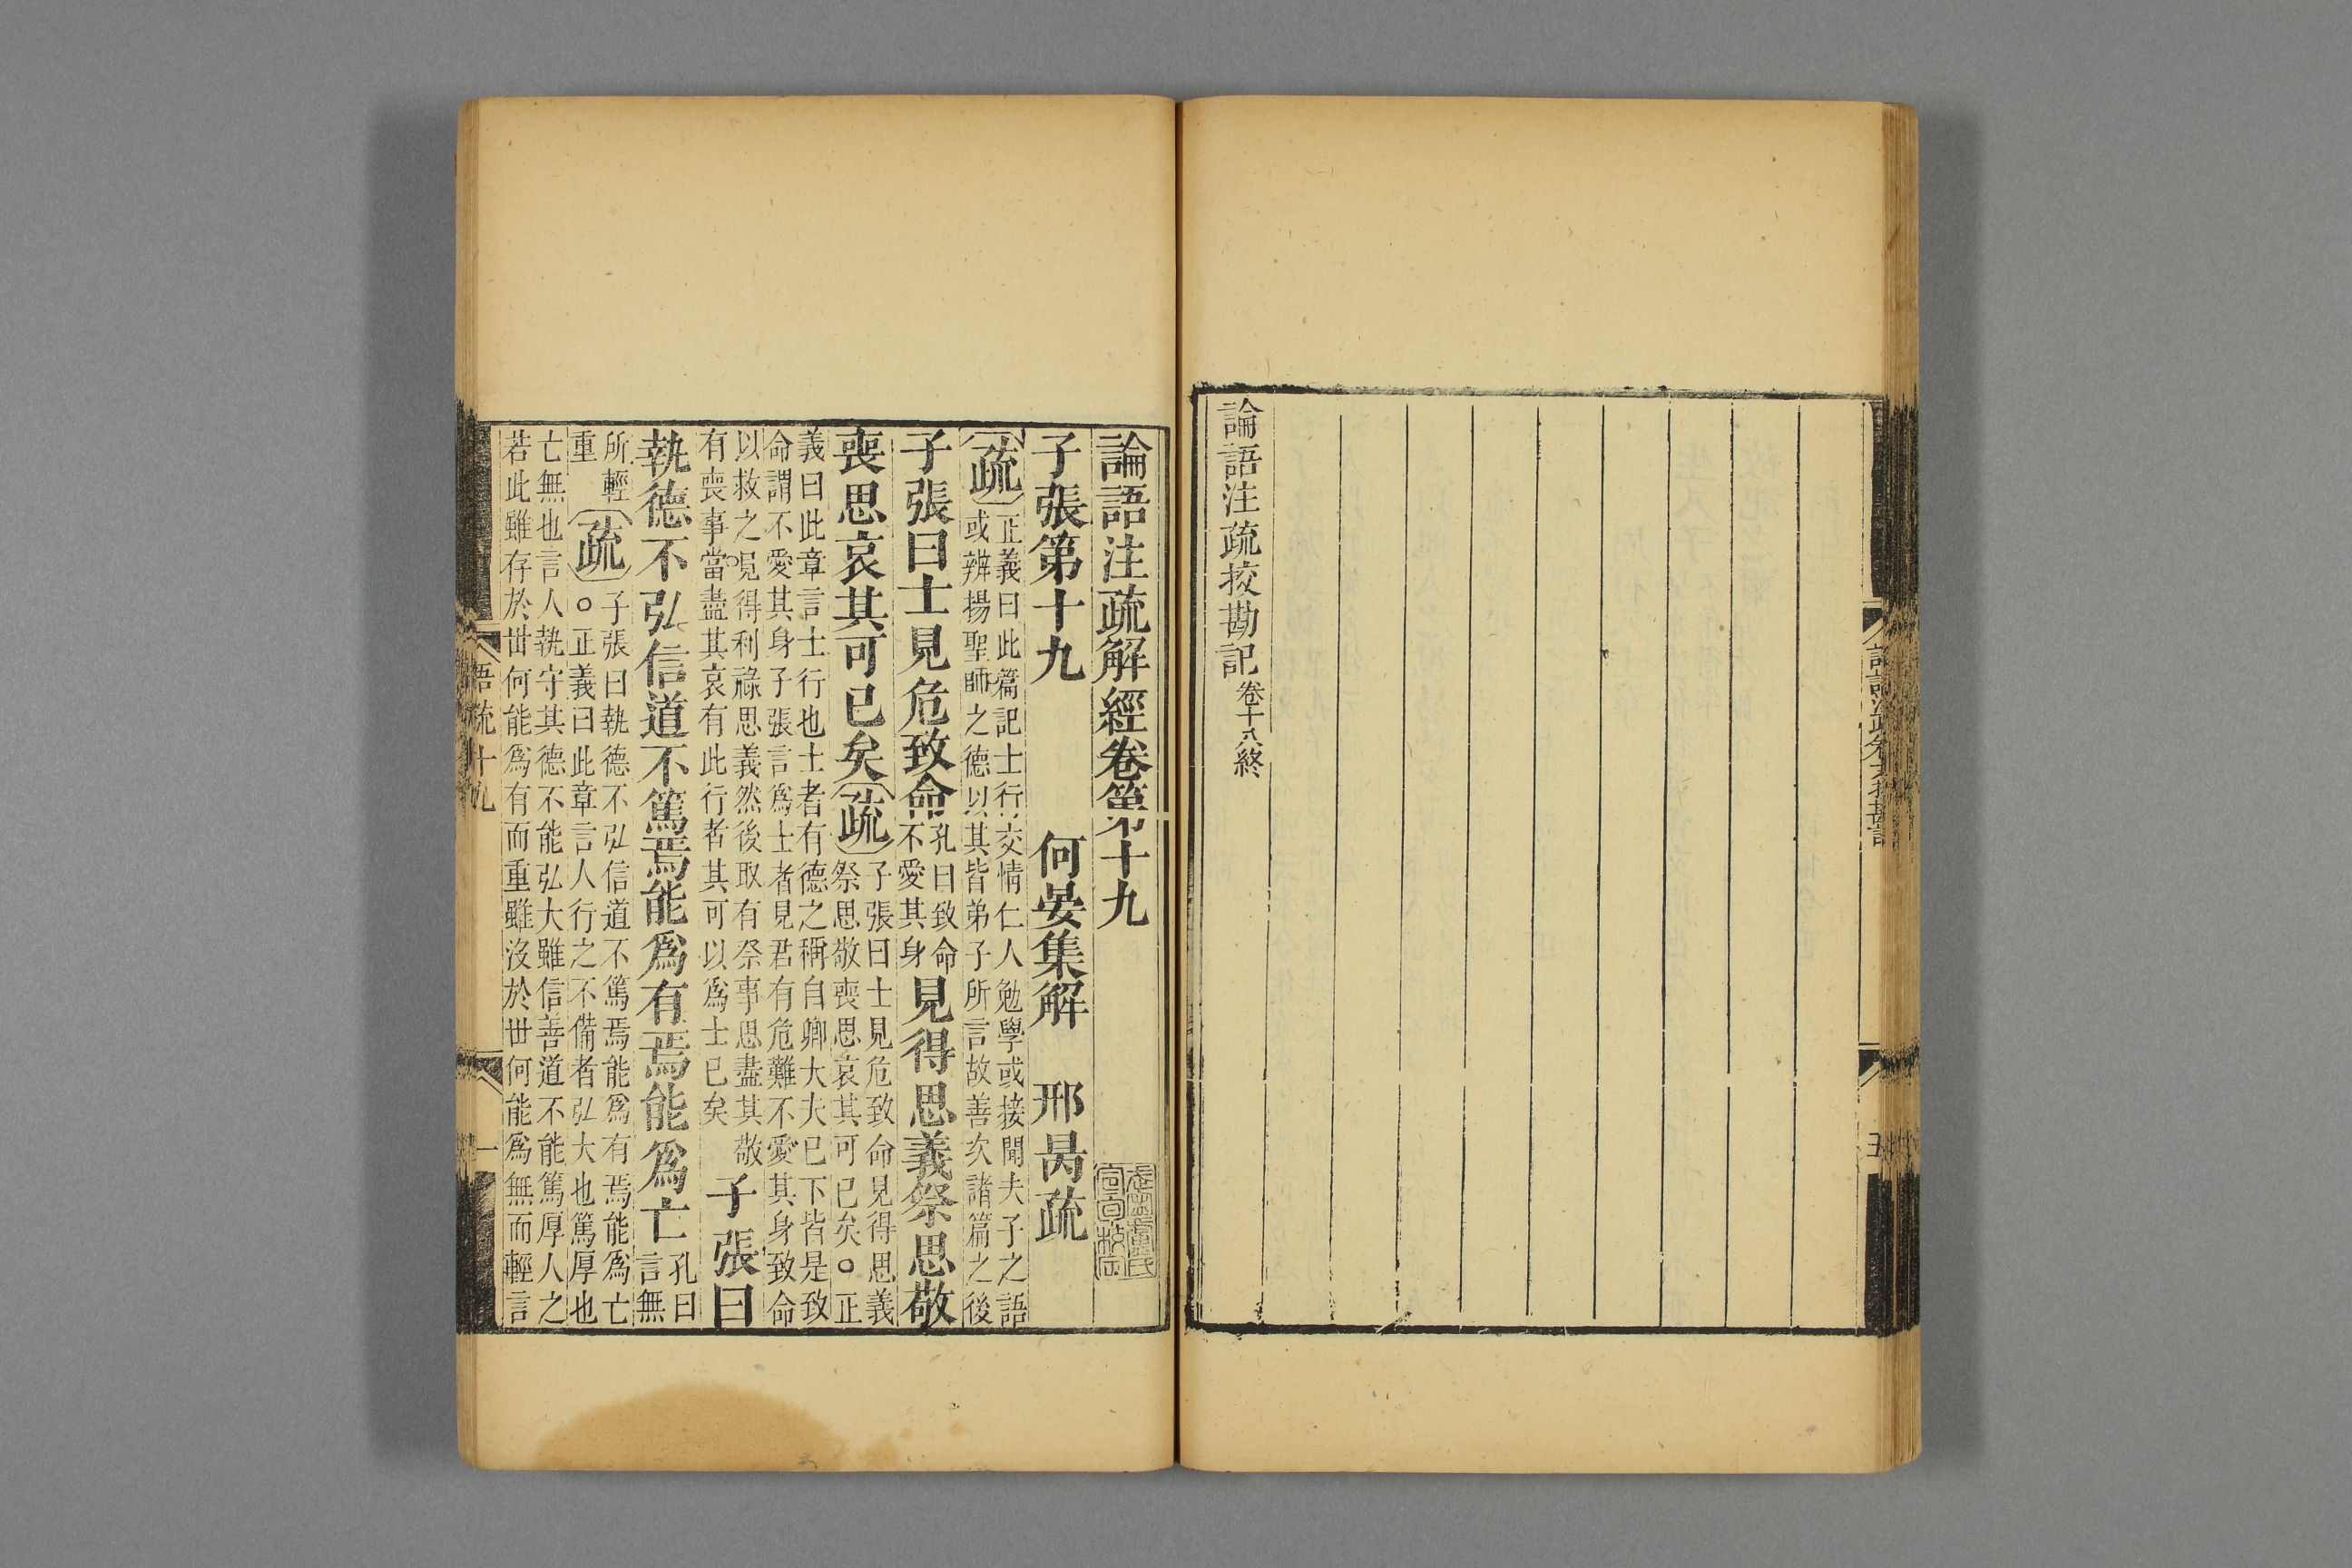 論語注疏挍勘記卷十八終
論語注疏解經卷第十九
子張第十九 何晏集解 邢昺疏
疏
正義曰此篇記士行交情仁人勉學或接聞夫子之語
或辨揚聖師之德以其皆弟子所言故善次諸篇之後
子張曰士見危致命
孔曰致命
不愛其身
見得思義祭思敬
喪思哀其可已矣
疏
子張曰士見危致命見得思義
祭思敬喪思哀其可已矣○正
義曰此章言士行也士者有德之稱自卿大夫已下皆是致
命謂不愛其身子張言爲士者見君有危難不愛其身致命
以救之見得利祿思義然後取有祭事思盡其敬
有喪事當盡其哀有此行者其可以爲士已矣
子張曰
執德不弘信道不篤焉能爲有焉能爲亡
孔曰
言無
所輕
重
疏
子張曰執德不弘信道不篤焉能爲有焉能爲亡
○正義曰此章言人行之不備者弘大也篤厚也
亡無也言人執守其德不能弘大雖信善道不能篤厚人之
若此雖存於世何能爲有而重雖沒於世何能爲無而輕言